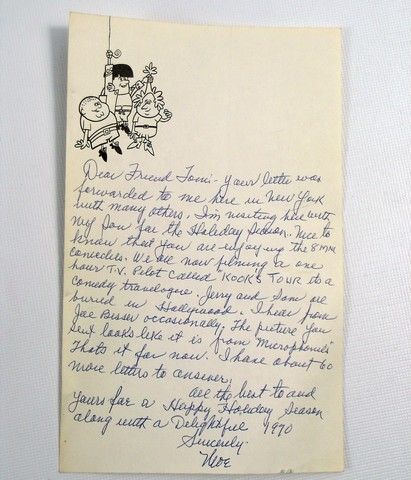 Dear Friend Tomi - Your letter was
forwarded to me here in New York
with many others. I'm visiting here with
my Son for the Holiday Season. Nice to
know that you are enjoying the 8 MM
comedies. We are now filming a one
hour T.V. Pilot called "KOOK'S TOUR its a
comedy travelogue. Jerry and Sam are
buried in Hollywood. I hear from
Joe Besser occasionally. The picture you
sent looks like it is from "Microphonies"
Thats it for now. I have about 60
more letters to answer.
All the best to and
yours for a Happy Holiday Season
along with a Delightful 1970
Sincerely
Moe